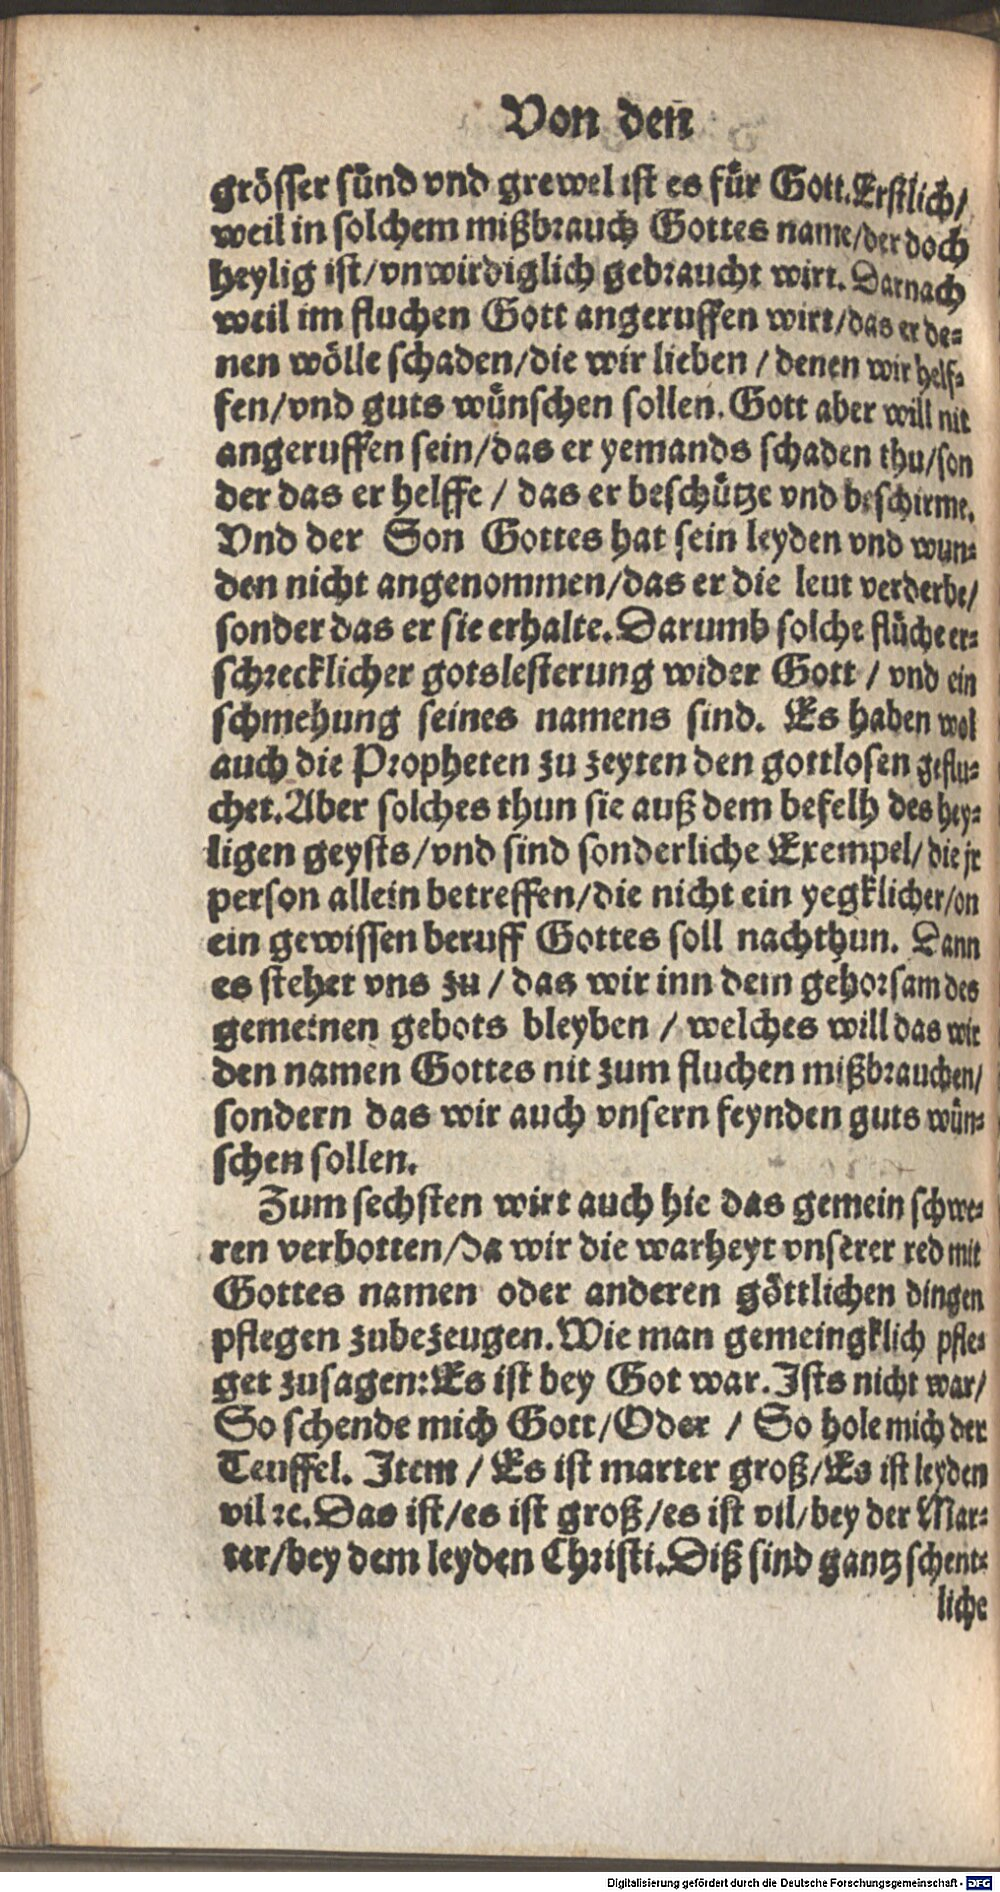 Von den
grösser sünd vnd grewel ist es für Gott. Erstlich/
weil in solchem mißbrauch Gottes name/der doch
heylig ist/vnwirdiglich gebraucht wirt. Darnach
weil im fluchen Gott angeruffen wirt/das er de-
nen wölle schaden/die wir lieben / denen wir helf-
fen/vnd guts wünschen sollen. Gott aber will nit
angeruffen sein/das er yemands schaden thu/son
der das er helffe / das er beschütze vnd beschirme.
Vnd der Son Gottes hat sein leyden vnd wun-
den nicht angenommen/das er die leut verderbe/
sonder das er sie erhalte. Darumb solche flüche er-
schrecklicher gotslesterung wider Gott / vnd ein
schmehung seines namens sind. Es haben wol
auch die Propheten zu zeyten den gottlosen geflu-
chet. Aber solches thun sie auß dem befelh des hey-
ligen geysts/vnd sind sonderliche Exempel/ die jr
person allein betreffen/die nicht ein yegklicher/on
ein gewissen beruff Gottes soll nachthun. Dann
es stehet vns zu / das wir inn dem gehorsam des
gemeinen gebots bleyben / welches will das wir
den namen Gottes nit zum fluchen mißbrauchen/
sondern das wir auch vnsern feynden guts wün-
schen sollen.
Zum sechsten wirt auch hie das gemein schwe-
ren verbotten/da wir die warheyt vnserer red mit
Gottes namen oder anderen göttlichen dingen
pflegen zubezeugen. Wie man gemeingklich pfle-
get zusagen: Es ist bey Got war. Ists nicht war/
So schende mich Gott/Oder / So hole mich der
Teuffel. Item / Es ist marter groß/Es ist leyden
vil ꝛc. Das ist/es ist groß/es ist vil/bey der Mar-
ter/bey dem leyden Christi. Diß sind gantz schent-
liche
Digitalisierung gefördert durch die Deutsche Forschungsgemeinschaft - DFG